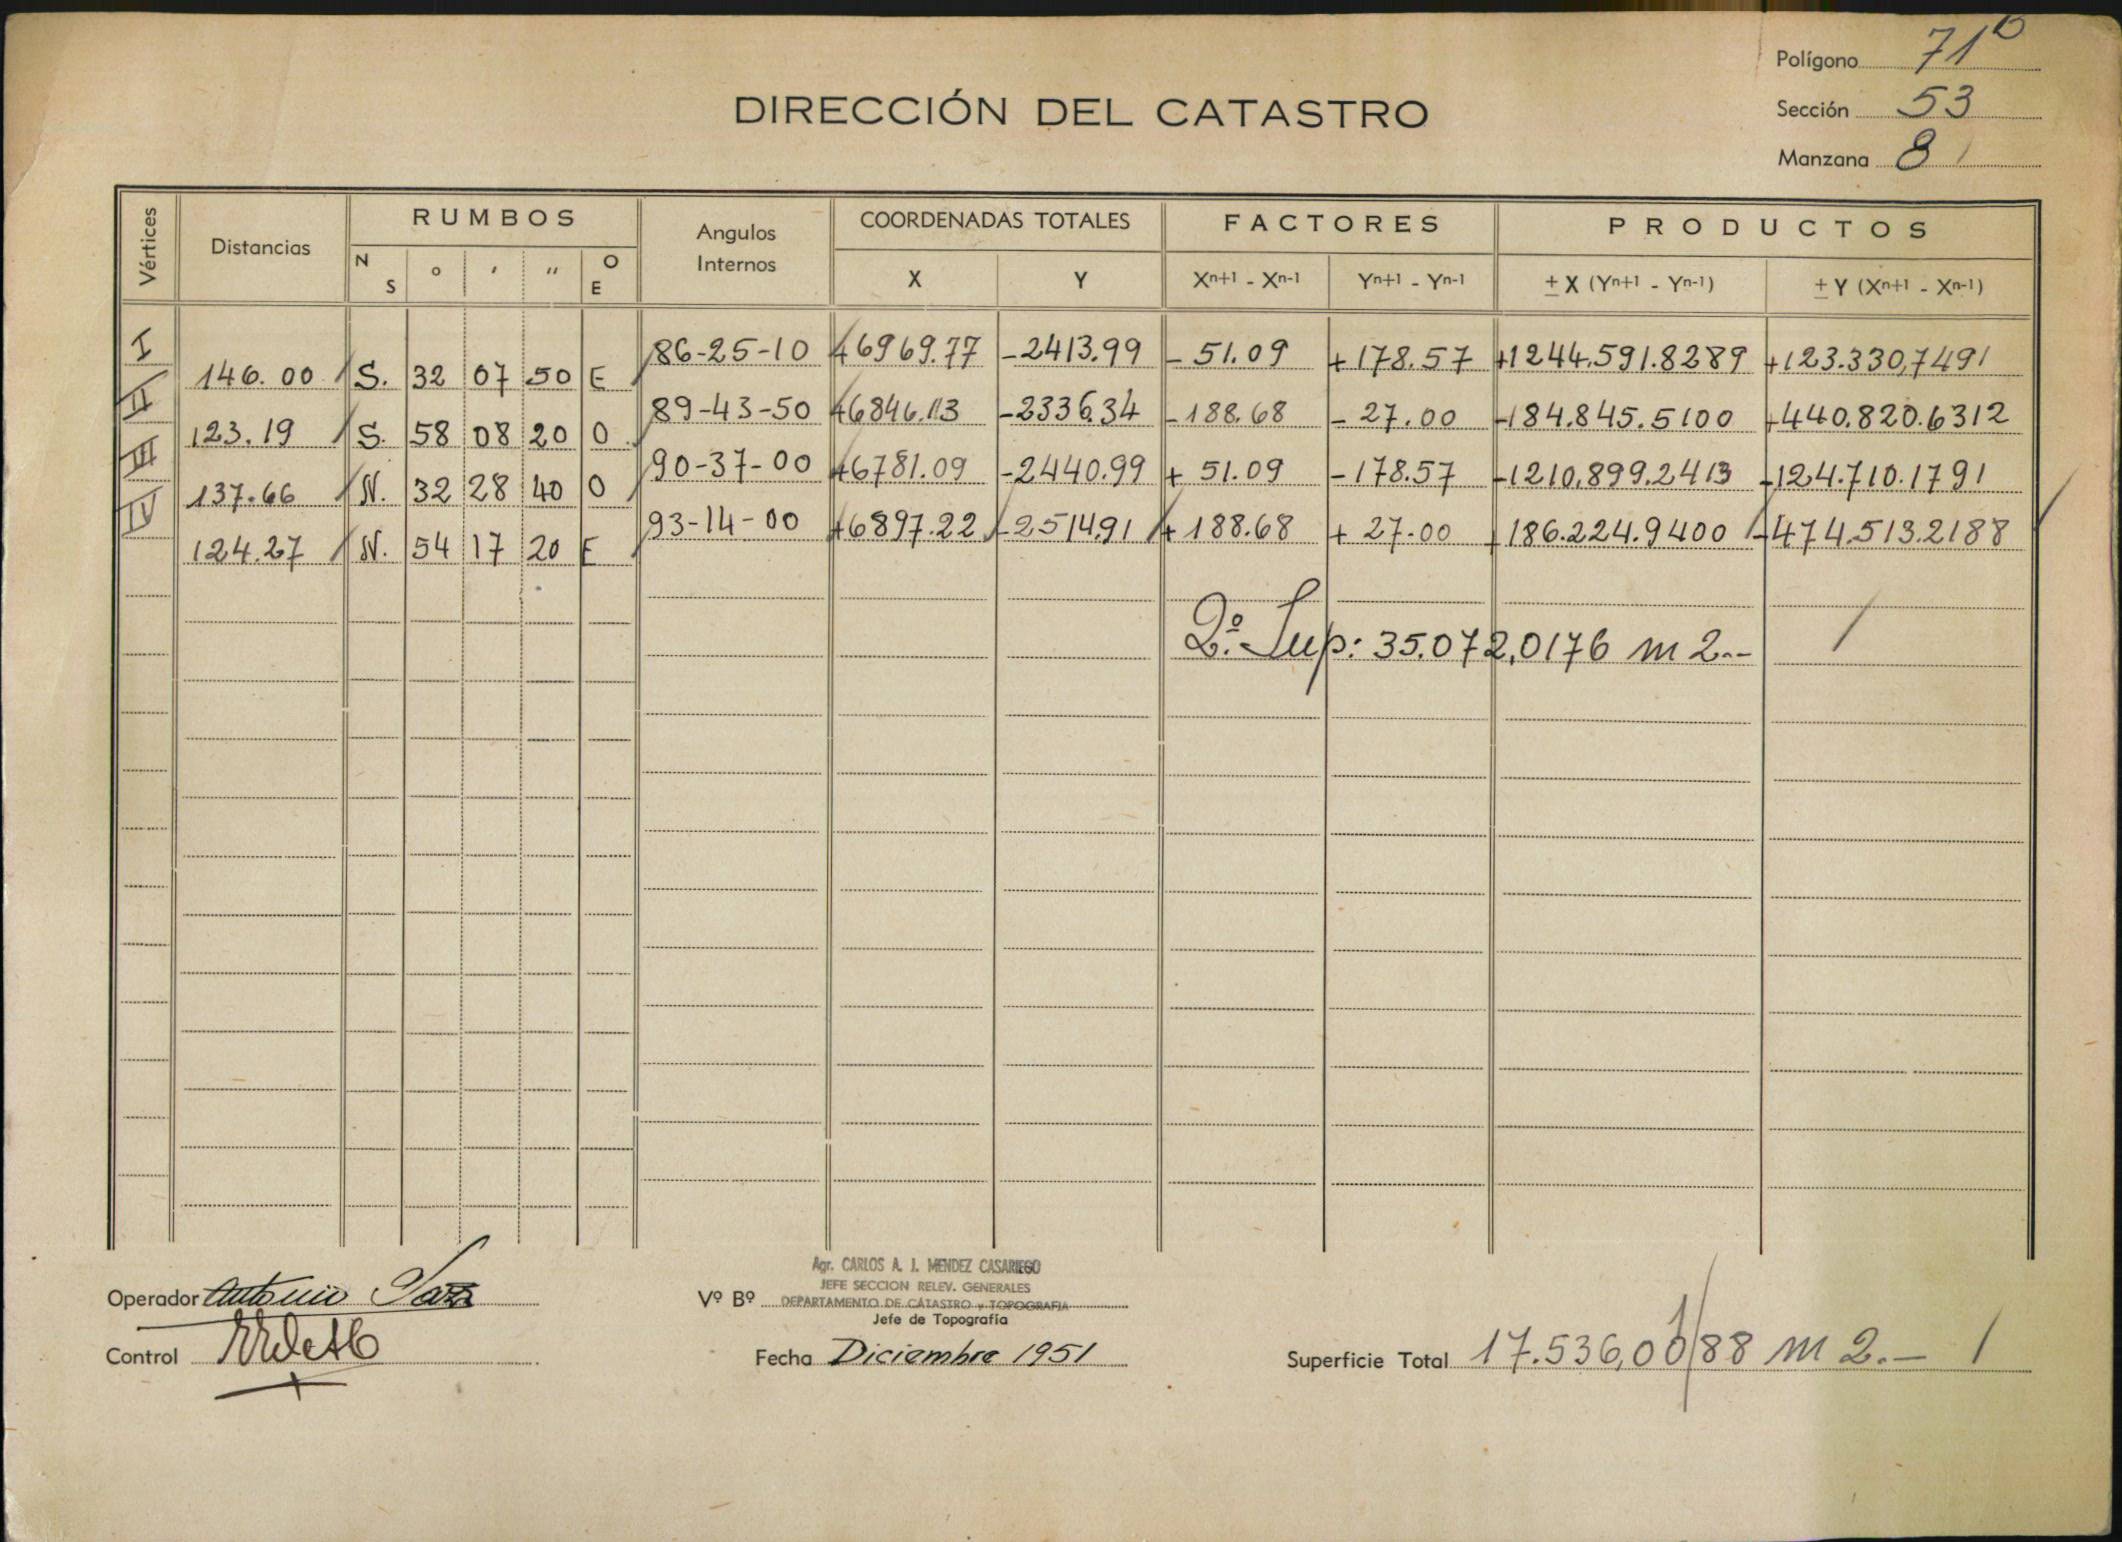 Polígono 71b
DIRECCIÓN DEL CATASTRO
Sección 53
Manzana 8
Vértices Distancias RUMBOS Angulos Internos COORDENADAS TOTALES FACTORES PRODUCTOS
N S ° ' " O E X Y Xn+1 - Xn-1 Yn+1 - Yn-1 ± X (Yn+1 - Yn-1) ± Y (Xn+1 - Xn-1)
I 86-25-10 +6969.77 -2413.99 - 51.09 +178.57 +1244.591.8289 +123.330,7491
146.00 S. 32 07 50 E
II 89-43-50 +6846.13 -2336.34 -188.68 - 27.00 -184.845.5100 +440.820.6312
123.19 S. 58 08 20 O
III 90-37-00 +6781.09 -2440.99 + 51.09 -178.57 -1210.899.2413 -124.710.1791
137.66 N. 32 28 40 O
IV 93-14-00 +6897.22 -2514.91 +188.68 + 27.00 +186.224.9400 -474.513.2188
124.27 N. 54 17 20 E
2º. Sup: 35.072,0176 m 2.-
Agr. CARLOS A. J. MENDEZ CASARIEGO
JEFE SECCION RELEV. GENERALES
Operador Antonio Vº Bº DEPARTAMENTO DE CATASTRO y TOPOGRAFIA
Jefe de Topografía
Control Fecha Diciembre 1951 Superficie Total 17.536,0088 m 2.-